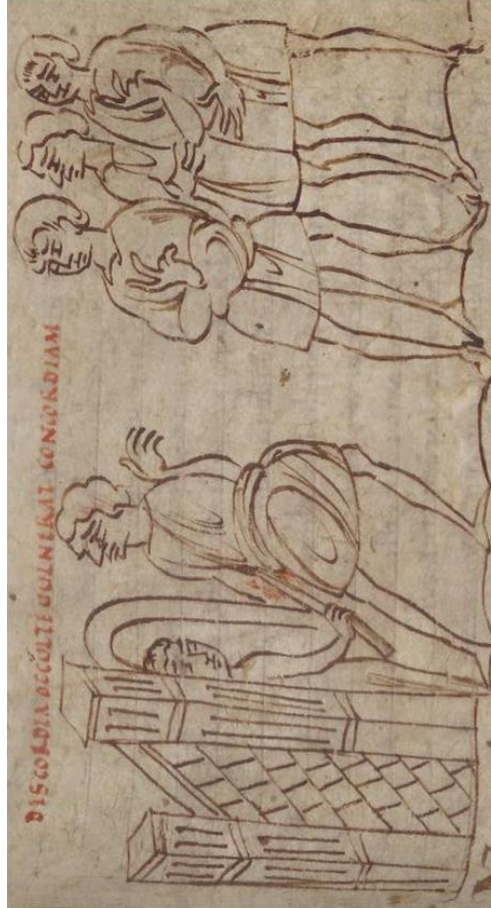 DISCORDIA OCCULTE UULNERAT CONCORDIAM